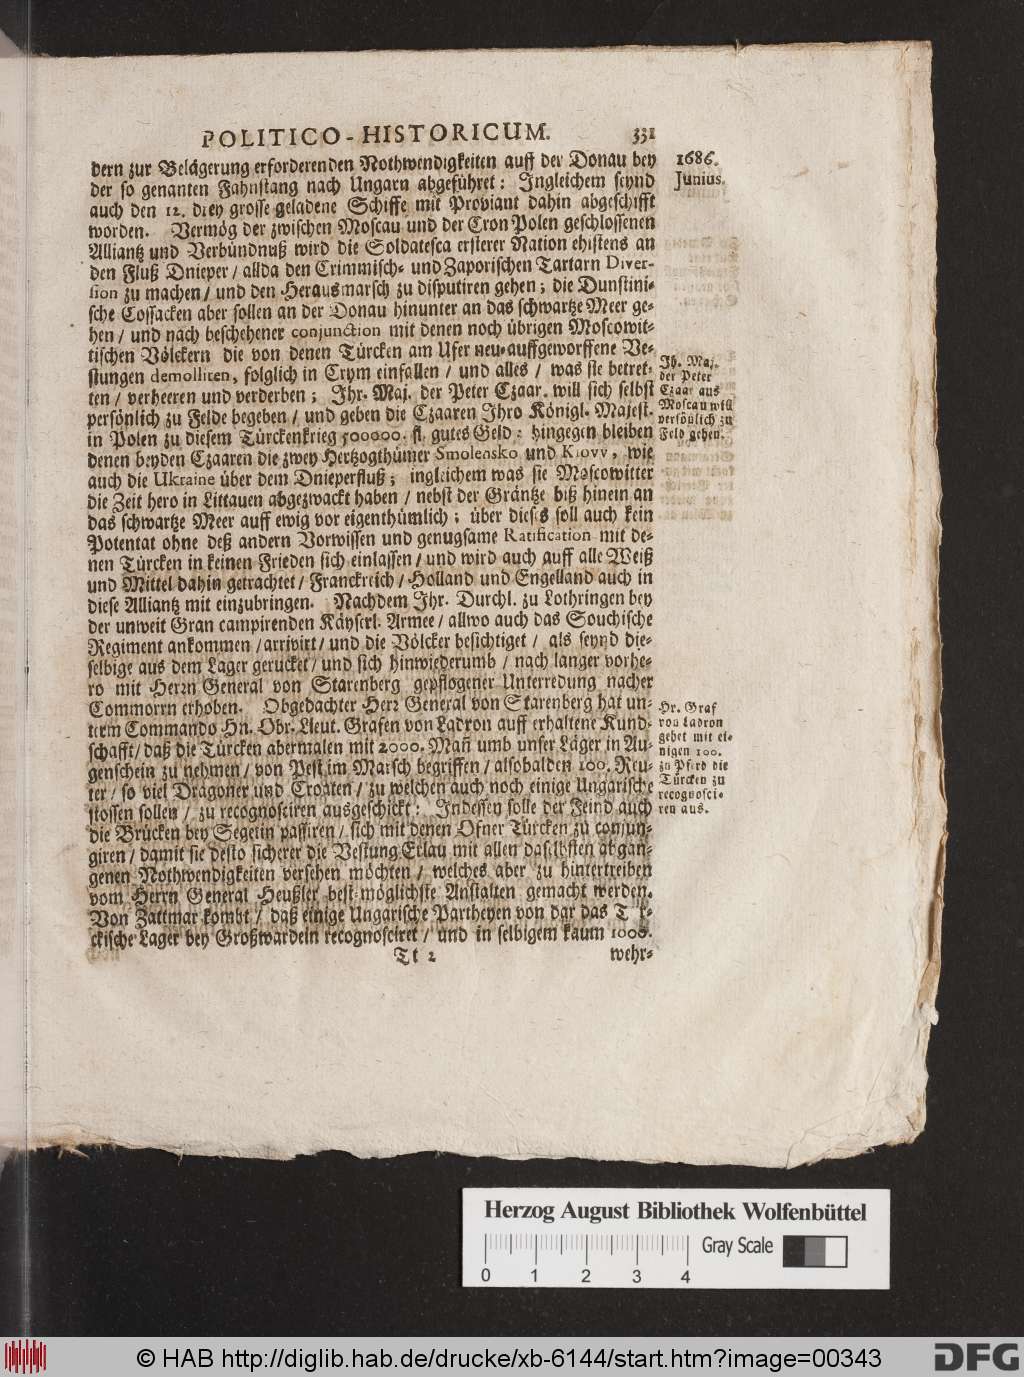 POLITICO-HISTORICUM. 331
1686.
Junius.
dern zur Belägerung erforderenden Nothwendigkeiten auff der Donau bey
der so genanten Fahnstang nach Ungarn abgeführet: Ingleichem seynd
auch den 12. drey grosse geladene Schiffe mit Proviant dahin abgeschifft
worden. Vermög der zwischen Moscau und der Cron Polen geschlossenen
Alliantz und Verbündnuß wird die Soldatesca ersterer Nation ehistens an
den Fluß Dnieper / allda den Crimmisch- und Zaporischen Tartarn Diver-
sion zu machen / und den Herausmarsch zu disputiren gehen; die Dunstini-
sche Cossacken aber sollen an der Donau hinunter an das schwartze Meer ge-
hen / und nach beschehener conjunction mit denen noch übrigen Moscowit-
tischen Völckern die von denen Türcken am Ufer neu-auffgeworffene Ve-
stungen demoliren, folglich in Crym einfallen / und alles / was sie betret-
ten / verheeren und verderben; Ihr. Maj. der Peter Czaar. will sich selbst
persönlich zu Felde begeben / und geben die Czaaren Ihro Königl. Majest.
in Polen zu diesem Türckenkrieg 500000. fl. gutes Geld: hingegen bleiben
denen beyden Czaaren die zwey Hertzogthümer Smolensko und Kiovv, wie
auch die Ukraine über dem Dnieperfluß; ingleichem was sie Moscowitter
die Zeit hero in Littauen abgezwackt haben / nebst der Gräntze biß hinein an
das schwartze Meer auff ewig vor eigenthümlich; über dieses soll auch kein
Potentat ohne deß andern Vorwissen und genugsame Ratification mit de-
nen Türcken in keinen Frieden sich einlassen / und wird auch auff alle Weiß
und Mittel dahin getrachtet / Franckreich / Holland und Engelland auch in
diese Alliantz mit einzubringen. Nachdem Ihr. Durchl. zu Lothringen bey
der unweit Gran campirenden Käyserl. Armee / allwo auch das Souchische
Regiment ankommen / arrivirt / und die Völcker besichtiget / als seynd die-
selbige aus dem Lager gerucket / und sich hinwiederumb / nach langer vorhe-
ro mit Herrn General von Starenberg gepflogener Unterredung nacher
Commorrn erhoben. Obgedachter Herr General von Starenberg hat un-
term Commando Hn. Obr. Lieut. Grafen von Ladron auff erhaltene Kund-
schafft / daß die Türcken abermalen mit 2000. Mañ umb unser Läger in Au-
genschein zu nehmen / von Pest im Marsch begriffen / alsobalden 100. Reu-
ter / so viel Dragoner und Croaten / zu welchen auch noch einige Ungarische
stossen sollen / zu recognosciren ausgeschickt: Indessen solle der Feind auch
die Brücken bey Segetin passiren / sich mit denen Ofner Türcken zu conjun-
giren / damit sie desto sicherer die Vestung Erlau mit allen daselbsten abgän-
genen Nothwendigkeiten versehen möchten / welches aber zu hintertreiben
vom Herrn General Heußler best-möglichste Anstalten gemacht werden.
Von Zattmar kombt / daß einige Ungarische Partheyen von dar das Tür-
ckische Lager bey Großwardein recognosciret / und in selbigem kaum 1000.
Tt 2 wehr-
Ih. Maj.
der Peter
Czaar aus
Moscau will
persönlich zu
Feld gehen.
Hr. Graf
von Ladron
gehet mit ei-
nigen 100.
zu Pferd die
Türcken zu
recognosci-
ren aus.
Herzog August Bibliothek Wolfenbüttel
Gray Scale
0 1 2 3 4
© HAB http://diglib.hab.de/drucke/xb-6144/start.htm?image=00343
DFG